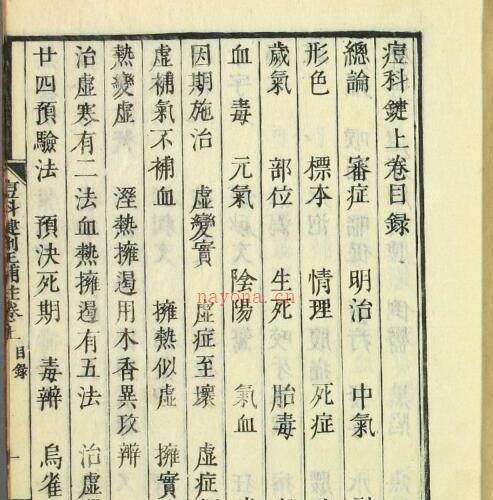 痘科鍵上卷目録
總論 審症 明治 中氣
形色 標本 情理 死症
歲氣 部位 生死 胎毒
血毒 元氣 陰陽 氣血
因期施治 虛變實 虛症至壞 虛症
虛補氣不補血 擁熱似虛 擁實
熱變虛 溼熱擁遏用木香異攻辨
治虛寒有二法血熱擁遏有五法 治虛
廿四預驗法 預決死期 毒辨 烏雀
痘科鍵刪正補註卷上 目録 一
nayona.cn